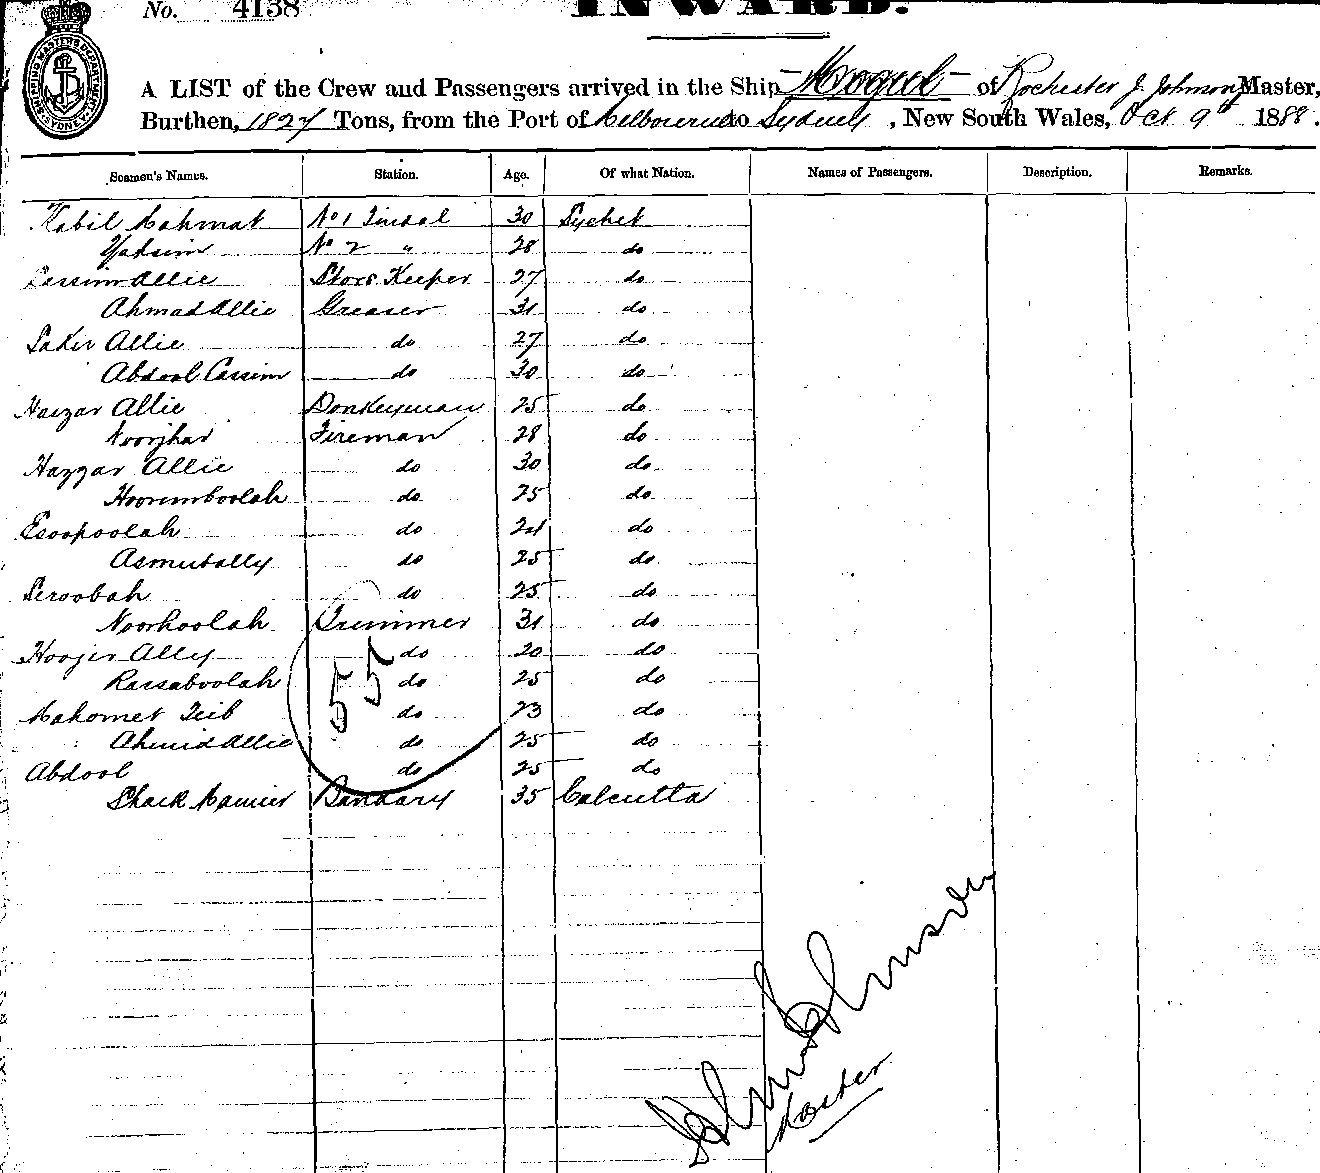 No. 4138
INWARD.
SHIPPING MASTERS DEPARTMENT SYDNEY
A LIST of the Crew and Passengers arrived in the Ship Mogul of Rochester J. Johnson Master,
Burthen, 1827 Tons, from the Port of Melbourne to Sydney, New South Wales, Oct 9th 1888.
Seamen's Names. Station. Age. Of what Nation. Names of Passengers. Description. Remarks.
Kabil Mahmat No 1 Tindal 30 Sychet
Yaksim No 2 " 28 do
Cassim Allie Store Keeper 27 do
Ahmad Allie Greaser 31 do
Saker Allie do 27 do
Abdool Cassim do 30 do
Hazar Allie Donkeyman 25 do
Noorjhar Fireman 28 do
Hazzar Allie do 30 do
Hoorumboolah do 25 do
Esoopoolah do 24 do
Asmutally do 25 do
Seroobah do 25 do
Noorhoolah Trimmer 31 do
Hoozer Ally do 20 do
Rassaboolah do 25 do
Mahomet Teib do 23 do
Ahmid Allie do 25 do
Abdool do 25 do
Shaik Bandary 35 Calcutta
55
John Johnson
Master